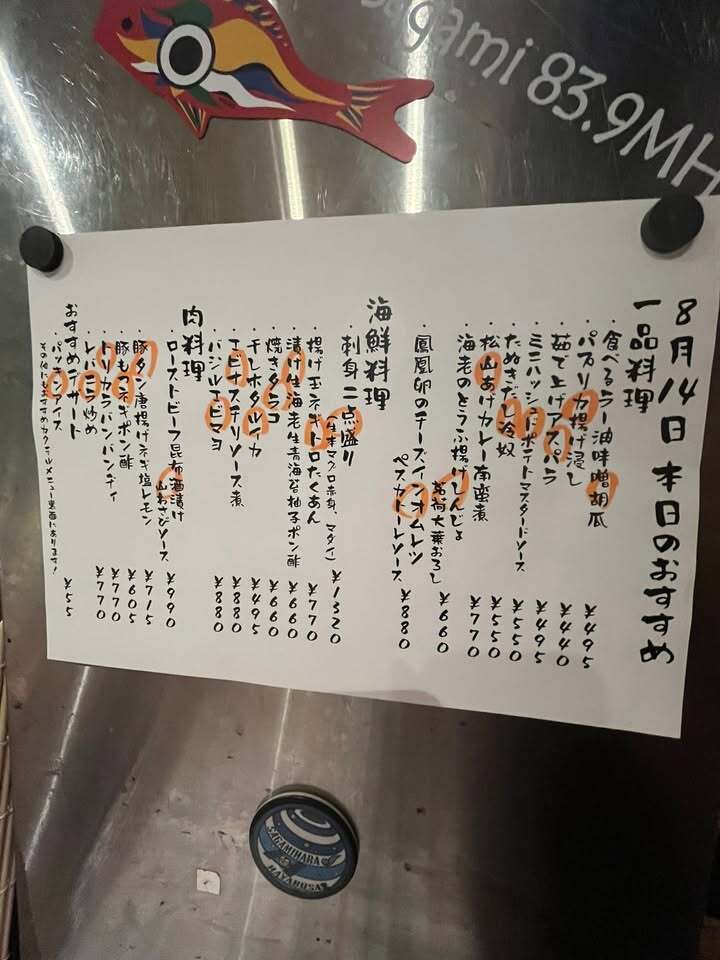 Sagami 83.9MH
8月14日 本日のおすすめ
一品料理
・食べるラー油味噌胡瓜 ¥495
・パプリカ揚げ浸し ¥440
・茹で上げアスパラ ¥495
・ミニハッシュドポテトマスタードソース ¥550
・たぬきだし冷奴 ¥550
・松山あげカレー南蛮煮 ¥770
・海老のとうふ揚げしんじょ
茗荷大葉おろし ¥660
・鳳凰卵のチーズインオムレツ
ペスカトーレソース ¥880
海鮮料理
・刺身二点盛り
(生本マグロ赤身、マダイ) ¥1320
・揚げ玉ネギトロたくあん ¥770
・漬け生海老生青海苔柚子ポン酢 ¥660
・焼きタラコ ¥660
・干しホタルイカ ¥495
・エビナスチリソース煮 ¥880
・バジルエビマヨ ¥880
肉料理
・ローストビーフ昆布酒漬け
山わさびソース ¥990
・豚タン唐揚げネギ塩レモン ¥715
・豚もネギポン酢 ¥605
・トリカラバンバンディ ¥770
・レバニラ炒め ¥770
おすすめデザート
・パッキアイス ¥55
その他にもおすすめカクテルメニュー裏面にあります!
SAGAMIHARA
HAYABUSA